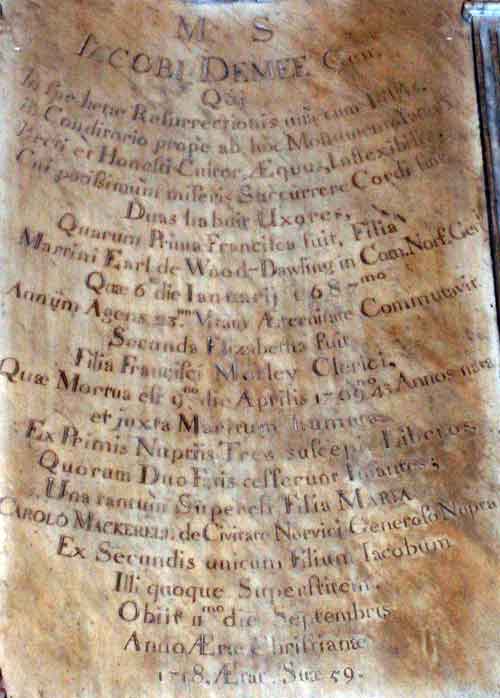 M S
IACOBI DEMEE Gen.
Qui
In spe bene Resurrectionis una cum
in Conditorio prope ab hoc Monumento Jacet
Probi et Honesti Cultor, Æquus, Inflexibilis
Cui potissimum miseris Succurrere Cordi fuit
Duas habuit Uxores,
Quarum Prima Francisca fuit, Filia
Martini Earl de Wood-Dawling in Com. Norf. Gen
Quæ 6to die Ianuarij 1687mo
Annum Agens 23um Vitam Æternitate Commutavit
Secunda Elizabetha fuit
Filia Francisci Morley Clerici,
Quæ Mortua est 9no die Aprilis 1709no 43 Annos nata
et juxta Maritum humata
Ex Primis Nuptiis Tres suscepit Liberos,
Quorum Duo Fatis cesserunt Infantes;
Una tantum Superest Filia MARIA
CAROLO MACKERELL de Civitate Norvici Generoso Nupta
Ex Secundis unicum Filium Iacobum
Illi quoque Superstitem.
Obiit die Septembris
Anno Æræ Christianæ
1718, Ætat. Suæ 59.